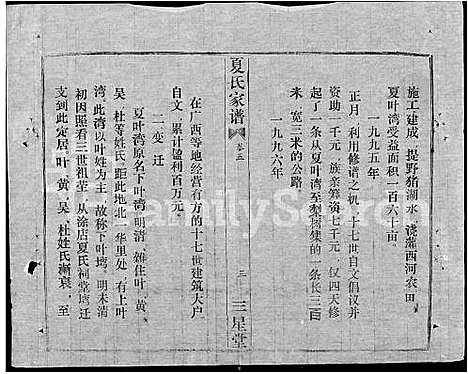 施工建成，提野猪湖水，浇灌西河农田，
夏叶湾受益面积一百六十亩。
一九九五年
正月，利用修谱之机，十七世自文倡议并
资助一千元，族亲筹资七千元，仅四天修
起了一条从夏叶湾至 集的一条长三
来，宽三米的公路。
一九九六年
夏氏家谱
卷三
三
三星堂
在广西等地经营有方的十七世建筑大户
自文，累计盈利百万元。
二 变迁
夏叶湾原名下叶湾，明清，杂住叶、黄、
吴、杜等姓氏，距此地北一华里处，有上叶
湾。此湾以叶姓为主，故称下叶塆。明末清
初因照看三世祖茔，从涂店夏氏祠堂塆迁
支到此定居。叶、黄、吴、杜姓氏渐衰，至
FamilySearch